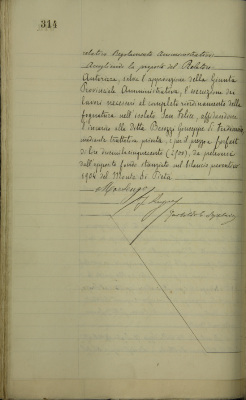 314
relativo Regolamento Amministrativo
Accogliendo la proposta del Relatore;
Autorizza, salva l'approvazione della Giunta
Provinciale Amministrativa, l'esecuzione dei
lavori necessari al completo riordinamento della
fognatura nell'isolato San Felice, affidandone
l'incarico alla Ditta Giuseppe di Ferdinando,
mediante trattativa privata, e pel prezzo forfait
di lire duemilacinquecento (2500), da prelevarsi
dall'apposito fondo stanziato nel bilancio preventivo
1904 del Monte di Pietà.